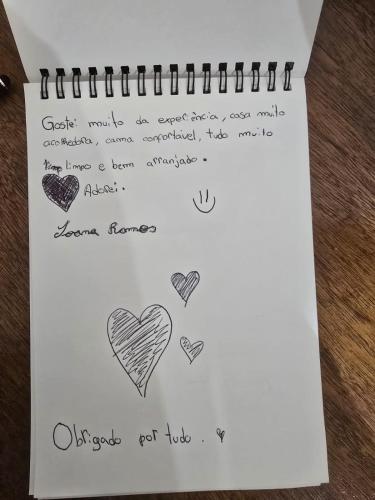 Gostei muito da experiência, casa muito
acolhedora, cama confortável, tudo muito
limpo e bem arranjado.
Adorei.
Joana Ramos
Obrigado por tudo.